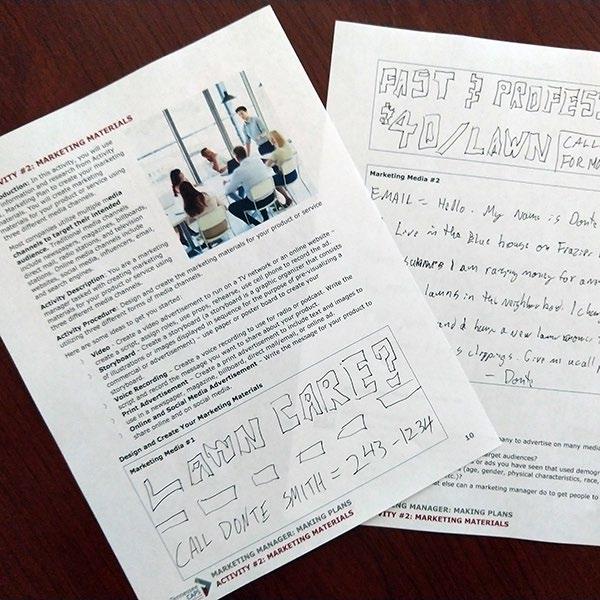 VITY #2: MARKETING MATERIALS
In this activity, you will use
information and research from Activity
Marketing Plan, to create your marketing
You will create marketing
materials for your product or service using
three different media channels.
Most companies utilize multiple media
channels to target their intended
audience. Traditional media channels
include newspapers, magazines, billboards,
direct mail, radio stations, and television
Online media includes email,
websites, social media, influencers,
and search engines.
Activity Description - You are a marketing
manager tasked with creating marketing
materials for your product or service using
three different media channels.
Activity Procedure - Design and create the marketing materials for your product or service
utilizing three different forms of media.
Here are some ideas to get you started:
Video - Create a video advertisement to run on a TV network or an online website -
create a script, assign roles, use props, rehearse, use cell phone to record the ad.
Storyboard - Create a storyboard (a storyboard is a graphic organizer that consists
of illustrations or images displayed in sequence for the purpose of pre-visualizing a
commercial or advertisement) - use paper or poster board to create your
storyboard.
Voice Recording - Create a voice recording to use for radio or podcast. Write the
script and record the message you want to share about your product.
Print Advertisement - Create a print advertisement to include text and images to
use in a newspaper, magazine, billboard, direct mail/email, or online ad.
Online and Social Media Advertisement - Write the message for your product to
share online and on social media.
Design and Create Your Marketing Materials
Marketing Media #1
LAWN CARE?
CALL DONTE SMITH = 243-1234
10
MARKETING MANAGER: MAKING PLANS
ACTIVITY #2: MARKETING MATERIALS
FAST & PROFESS
$40/LAWN
CALL
FOR MO
Marketing Media #2
EMAIL = Hello. My Name is Donte
Live in the Blue house on Frazier
summer I am raising money for a
lawns in the neighborhood. I char
and have a new lawn mower
clippings. Give me a call
- Donte
any to advertise on many media
target audiences?
or ads you have seen that used demog
(age, gender, physical characteristics, race,
etc.)?
at else can a marketing manager do to get people to
MARKETING MANAGER: MAKING PLANS
IVITY #2: MARKETING MATERIALS